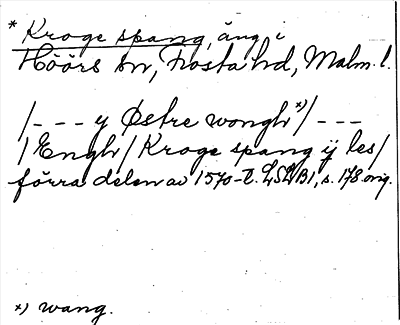 * Kroge spang, äng i
Höörs sn, Frosta hd, Malm. l.
/--- y Østre wongh x)/---
/Engh/ Kroge spang ij les/
förra delen av 1570-t. LSLB1, s. 178 orig.
x) wang.